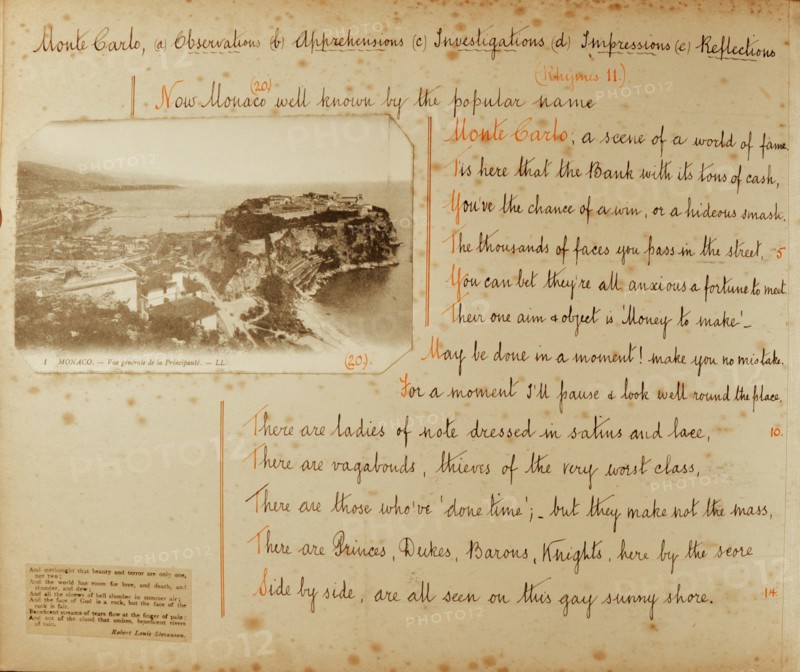 Monte Carlo, (a) Observations (b) Apprehensions (c) Investigations (d) Impressions (e) Reflections
(Rhymes 11.)
(20)
Now Monaco well known by the popular name
Monte Carlo; a scene of a world of fame.
'Tis here that the Bank with its tons of cash,
You've the chance of a win, or a hideous smash.
The thousands of faces you pass in the street, 5
You can bet they're all anxious a fortune to meet.
Their one aim & object is 'Money to make'_
May be done in a moment! make you no mistake.
For a moment I'll pause & look well round the place,
There are ladies of note dressed in satins and lace, 10.
There are vagabonds, thieves of the very worst class,
There are those who've 'done time'; _ but they make not the mass,
There are Princes, Dukes, Barons, Knights, here by the score
Side by side, are all seen on this gay sunny shore. 14.
1 MONACO. — Vue générale de la Principauté. — LL.
(20).
And methought that beauty and terror are only one,
not two;
And the world has room for love, and death, and
thunder, and dew;
And all the sinews of hell slumber in summer air;
And the face of God is a rock, but the face of the
rock is fair.
Beneficent streams of tears flow at the finger of pain;
And out of the cloud that smites, beneficent rivers
of rain.
Robert Louis Stevenson.
PHOTO12